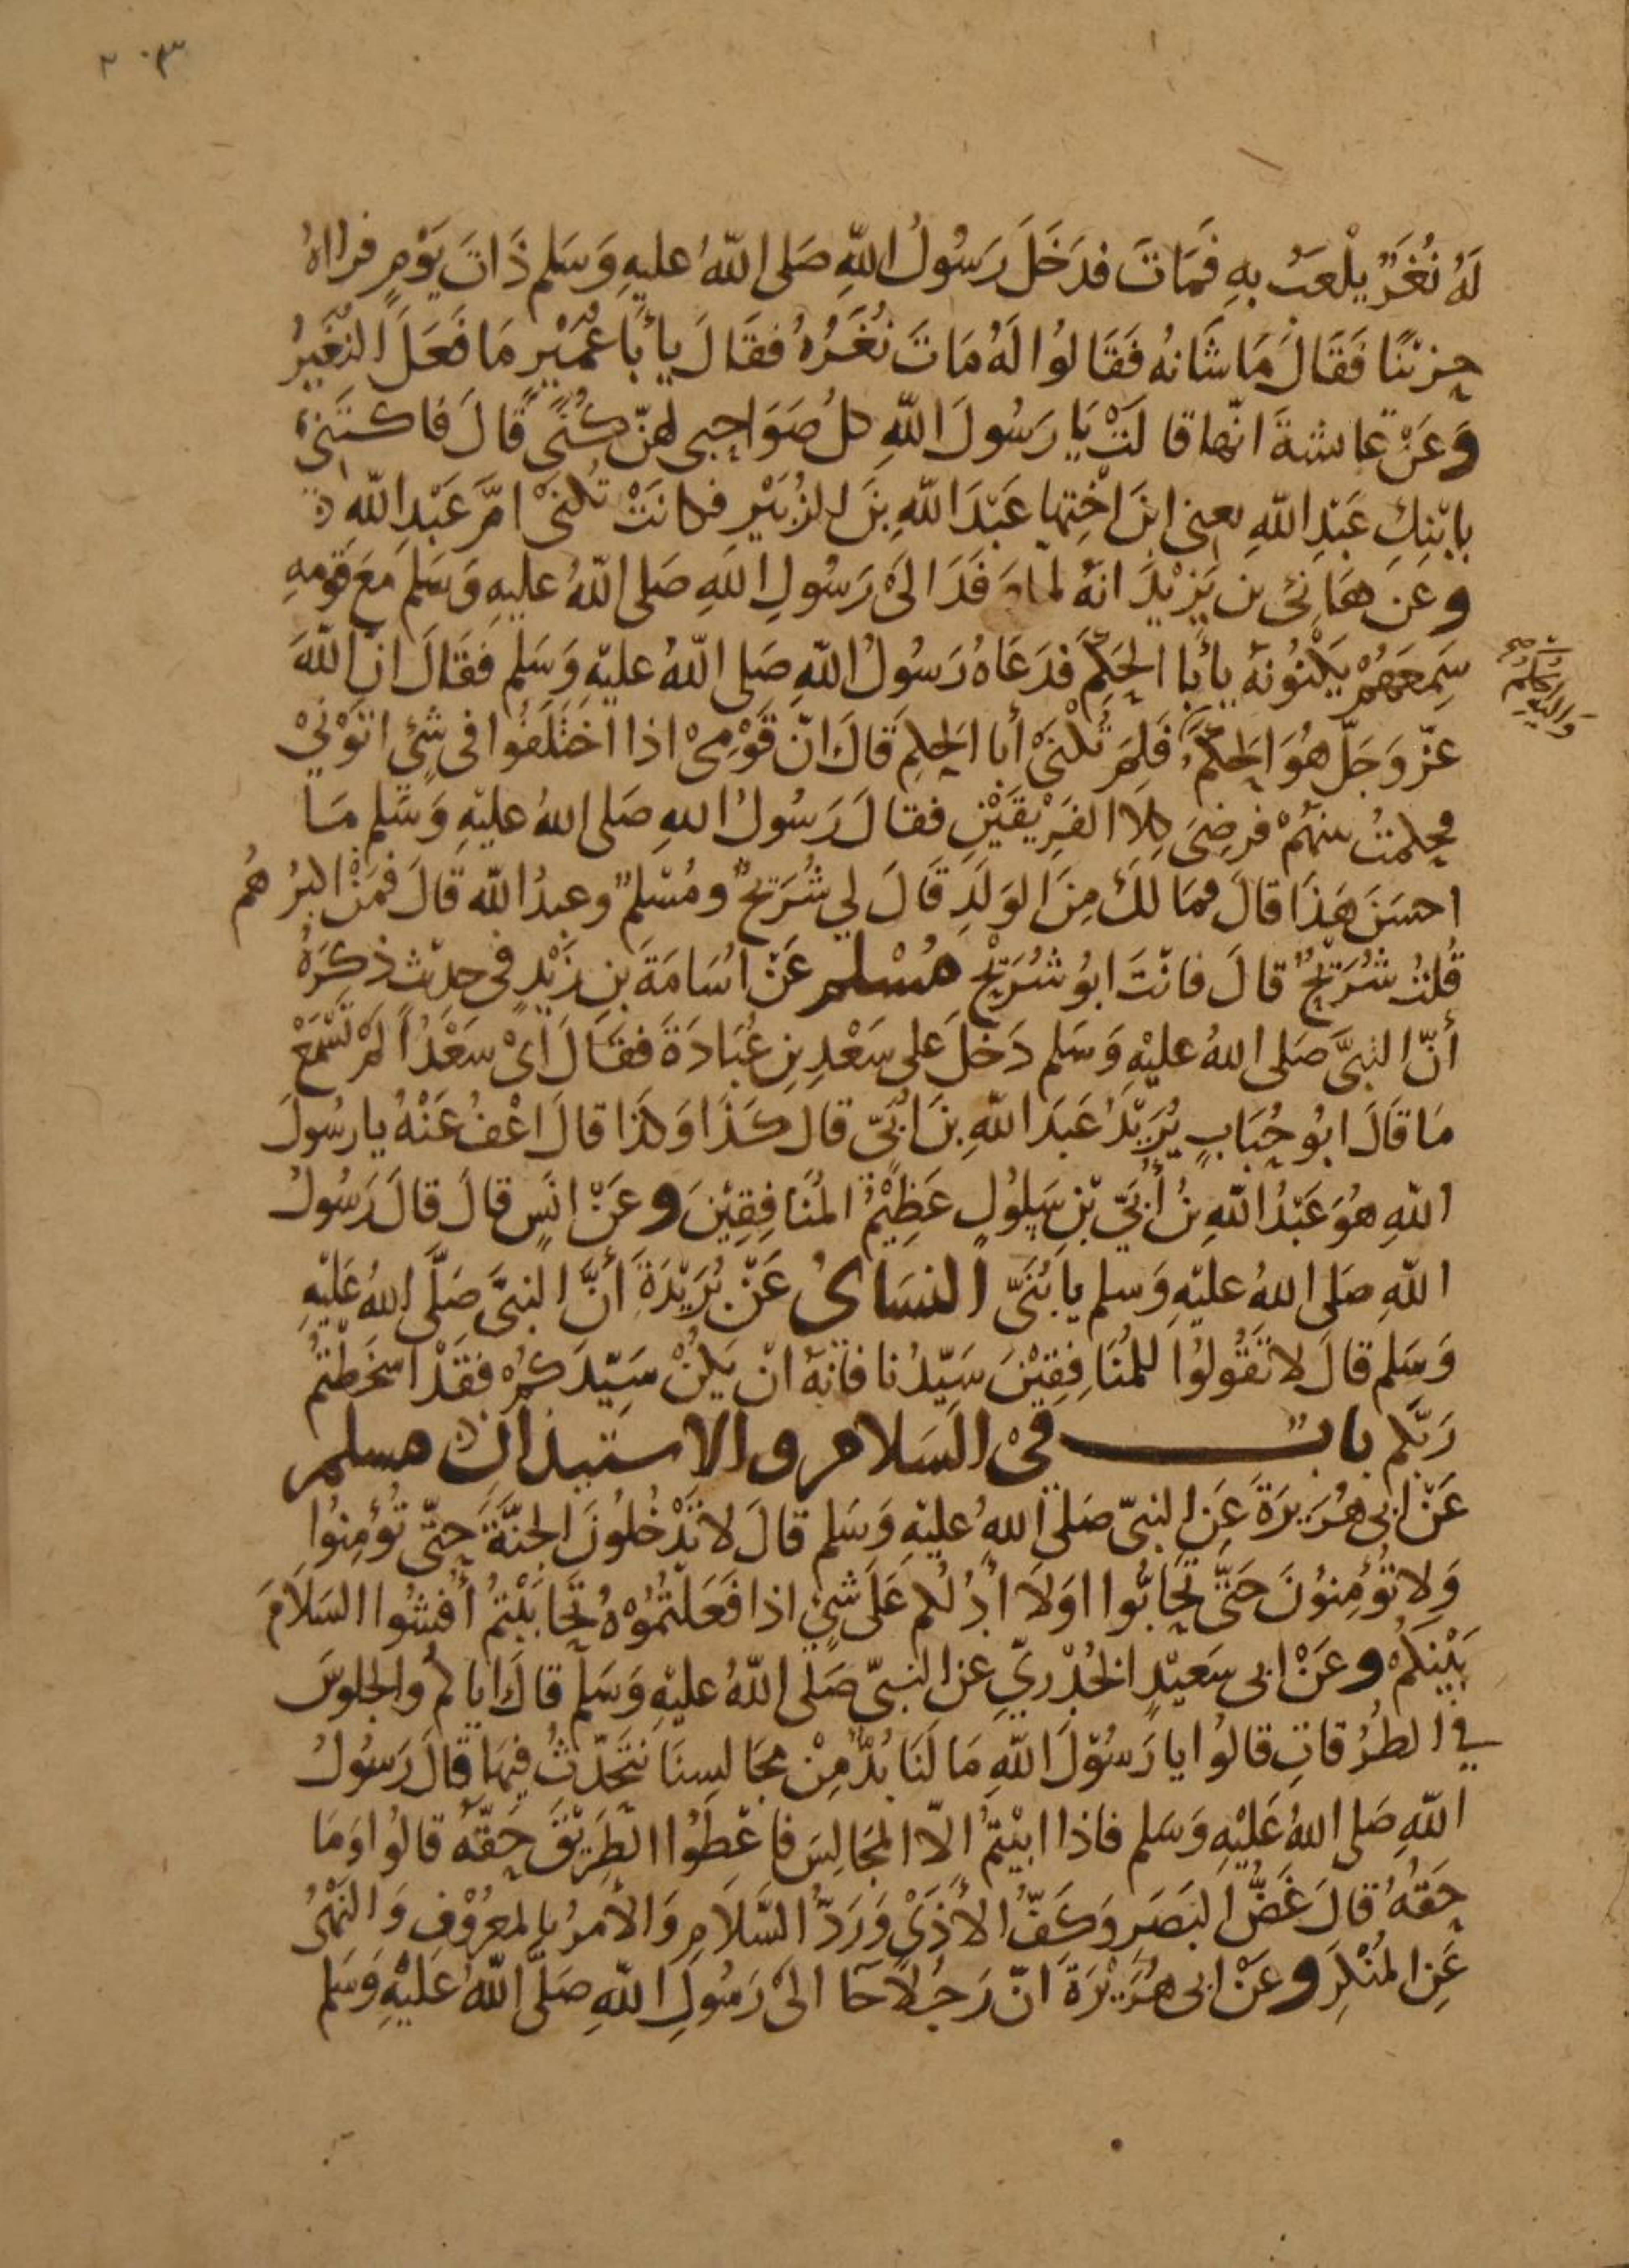 ٢٠٣
لَهُ نُغَرٌ يلْعَبُ بهِ فَمَاتَ فدَخَلَ رَسُولُ اللّهِ صَلى اللّهُ عليهِ وَسَلم ذَاتَ يَوْمٍ فراهُ
حِزْنًا فَقَالَ مَا شَانهُ فَقَالوُا لَهُ مَاتَ نُغَرُهُ فقَالَ يأبَا عُمَيْرٍ مَا فَعَلَ النُغَيْرُ
وَعَنْ عَايشةَ انّها قالَتْ يَا رَسُولَ اللّهِ كلُ صَوَاحِبى لهنّ كُنًى قَالَ فاكتَنِى
بابْنِكِ عَبْدِ اللّهِ يعنى ابنَ اخْتِها عَبْدَ اللّهِ بنَ الزُبَيْرِ فكانَتْ تُكنَىْ امَّ عَبْدِ اللّهِ
وعَن هَانِئ بن يَزِيْدَ انهُ لما وَفَدَ الىَ رَسُولِ اللهِ صَلى اللّهُ عليهِ وَسَلم مَعَ قَوْمِهِ
سَمِعَهُمْ يَكْنُونهُ يأبَا الحَكَم فدَعَاهُ رَسُولُ اللّهِ صَلى اللّهُ عليْهِ وَسَلم فقَالَ انّ اللّهَ
عزّ وَجَلّ هُوَ الحَكَمُ فَلِمَ تُكنَىْ أبا الحَكمِ قَالَ انّ قَوْمِىْ اذا اختَلفُوا فى شئٍ اتَوْنيْ
وَاليهِ الحُكمُ صح
فحكمتُ بينهُمْ فرضِىَ كلا الفَرِيْقَيْنِ فقالَ رَسُولُ اللهِ صَلى اللهُ عليْهِ وَسَلم مَا
احسَنَ هَذَا قالَ فمَا لكَ مِنَ الوَلَدِ قَالَ لي شُرَيحٌ ومُسْلمٌ وعبدُ اللّه قَالَ فمَنْ اكبرُهُم
قُلتُ شُرَيْحٌ قالَ فانْتَ ابُو شُرَيْح مُسْلم عَنْ اسَامَةَ بنِ زَيْدٍ فى حديْثٍ ذكرَهُ
أنّ النبىَّ صَلى اللهُ عليْهِ وَسَلم دَخلَ على سَعْدِ بنِ عُبَادَةَ فقَالَ اىْ سَعْدُ ألمْ تَسْمَعْ
مَا قَالَ ابُو حُبَابٍ يُرِيْدُ عَبدَ اللّهِ بنَ ابَىّ قال كَذَا وَكذَا قالَ اعْفُ عَنْهُ يا رسُولَ
اللّهِ هُوَ عَبْدُ اللّهِ بنُ أُبَيّ بْنِ سَلُولٍ عَظِيْمُ المُنَافِقِيْنَ وعَنْ انَسٍ قالَ قالَ رَسُولُ
اللّهِ صَلى اللهُ عليْهِ وَسلم يا بُنَىّ النسَاىُ عَنْ بُرَيْدَةَ أنَّ النبىَّ صَلَّى اللهُ عَلَيْهِ
وَسَلم قالَ لا تَقُولوُا للمُنَافِقِيْنَ سَيّدُنا فانهُ انْ يَكُنْ سَيّدَكمْ فقَدْ اسخَطْتمُ
رَبّكم بابٌ فىْ السَلام والاستيذان مسلم
عَنْ ابى هُرَيرَةَ عَنِ النبىّ صَلى اللهُ عليْهِ وَسَلم قالَ لا تَدْخُلُونَ الجنَّةَ حَتّى تُؤمِنوُا
وَلا تُؤْمِنوُنَ حَتّى تَحَابّوا اوَلَا أدُلكم عَلَى شئٍ اذا فَعَلْتُمُوْهُ تَحَابَبْتمُ أفشُوا السَلَامَ
بَيْنكمْ وعَنْ ابى سَعيْدٍ الخُدْريّ عن النبىّ صَلى اللّهُ عليْهِ وَسَلم قالَ اياكم والجلوسَ
في الطُرُقاتِ قالوُا يا رَسُوْلَ اللّهِ مَا لَنَا بُدٌّ مِنْ مجَالسِنَا نتَحَدّثُ فيهَا قالَ رَسُولُ
اللّهِ صَلى اللهُ عَلَيْهِ وَسَلم فاذا ابيْتمُ الّا المجَالِسَ فاعْطوُا الطَرِيْقَ حَقّهُ قالوُا وَمَا
حَقهُ قالَ غَضُّ البَصَرِ وَكَفُّ الأذَىْ وَرَدُّ السَّلَامِ وَالأمرُ بالمعرُوْفِ وَالنَهْىُ
عَنِ المُنْكَرِ وعَنْ ابى هُرَيْرَةَ انّ رَجُلًا جَا الىَ رَسُولِ اللّهِ صَلَّى اللّهُ عَلَيْهِ وَسَلم